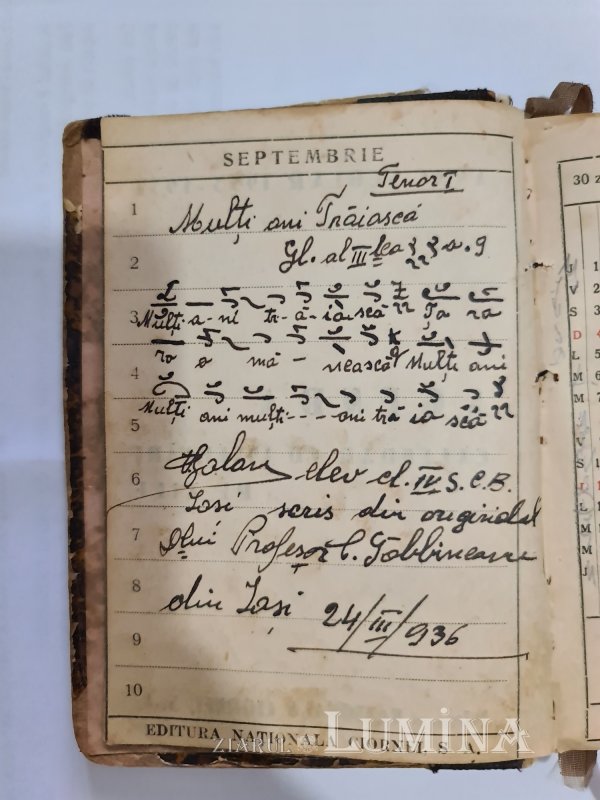 SEPTEMBRIE
Tenor I
1
Mulți ani Trăiască
2
Gl. al III lea
3
Mulți a-ni tr-ă-ia-scă Ța ra
4
ro o mâ - nească Mulți ani
5
Mulți ani mulți - - - ani tră ia scă
6
elev cl. IV S.C.B.
Iași scris din originalul
7
Dlui Profesor C.
8
din Iași 24/III/936
9
10
EDITURA NAȚIONALA CIORNEI, S. A.
ZIARUL LUMINA
30
J
V
S
D
L
M
M
V
S
L
M
M
J